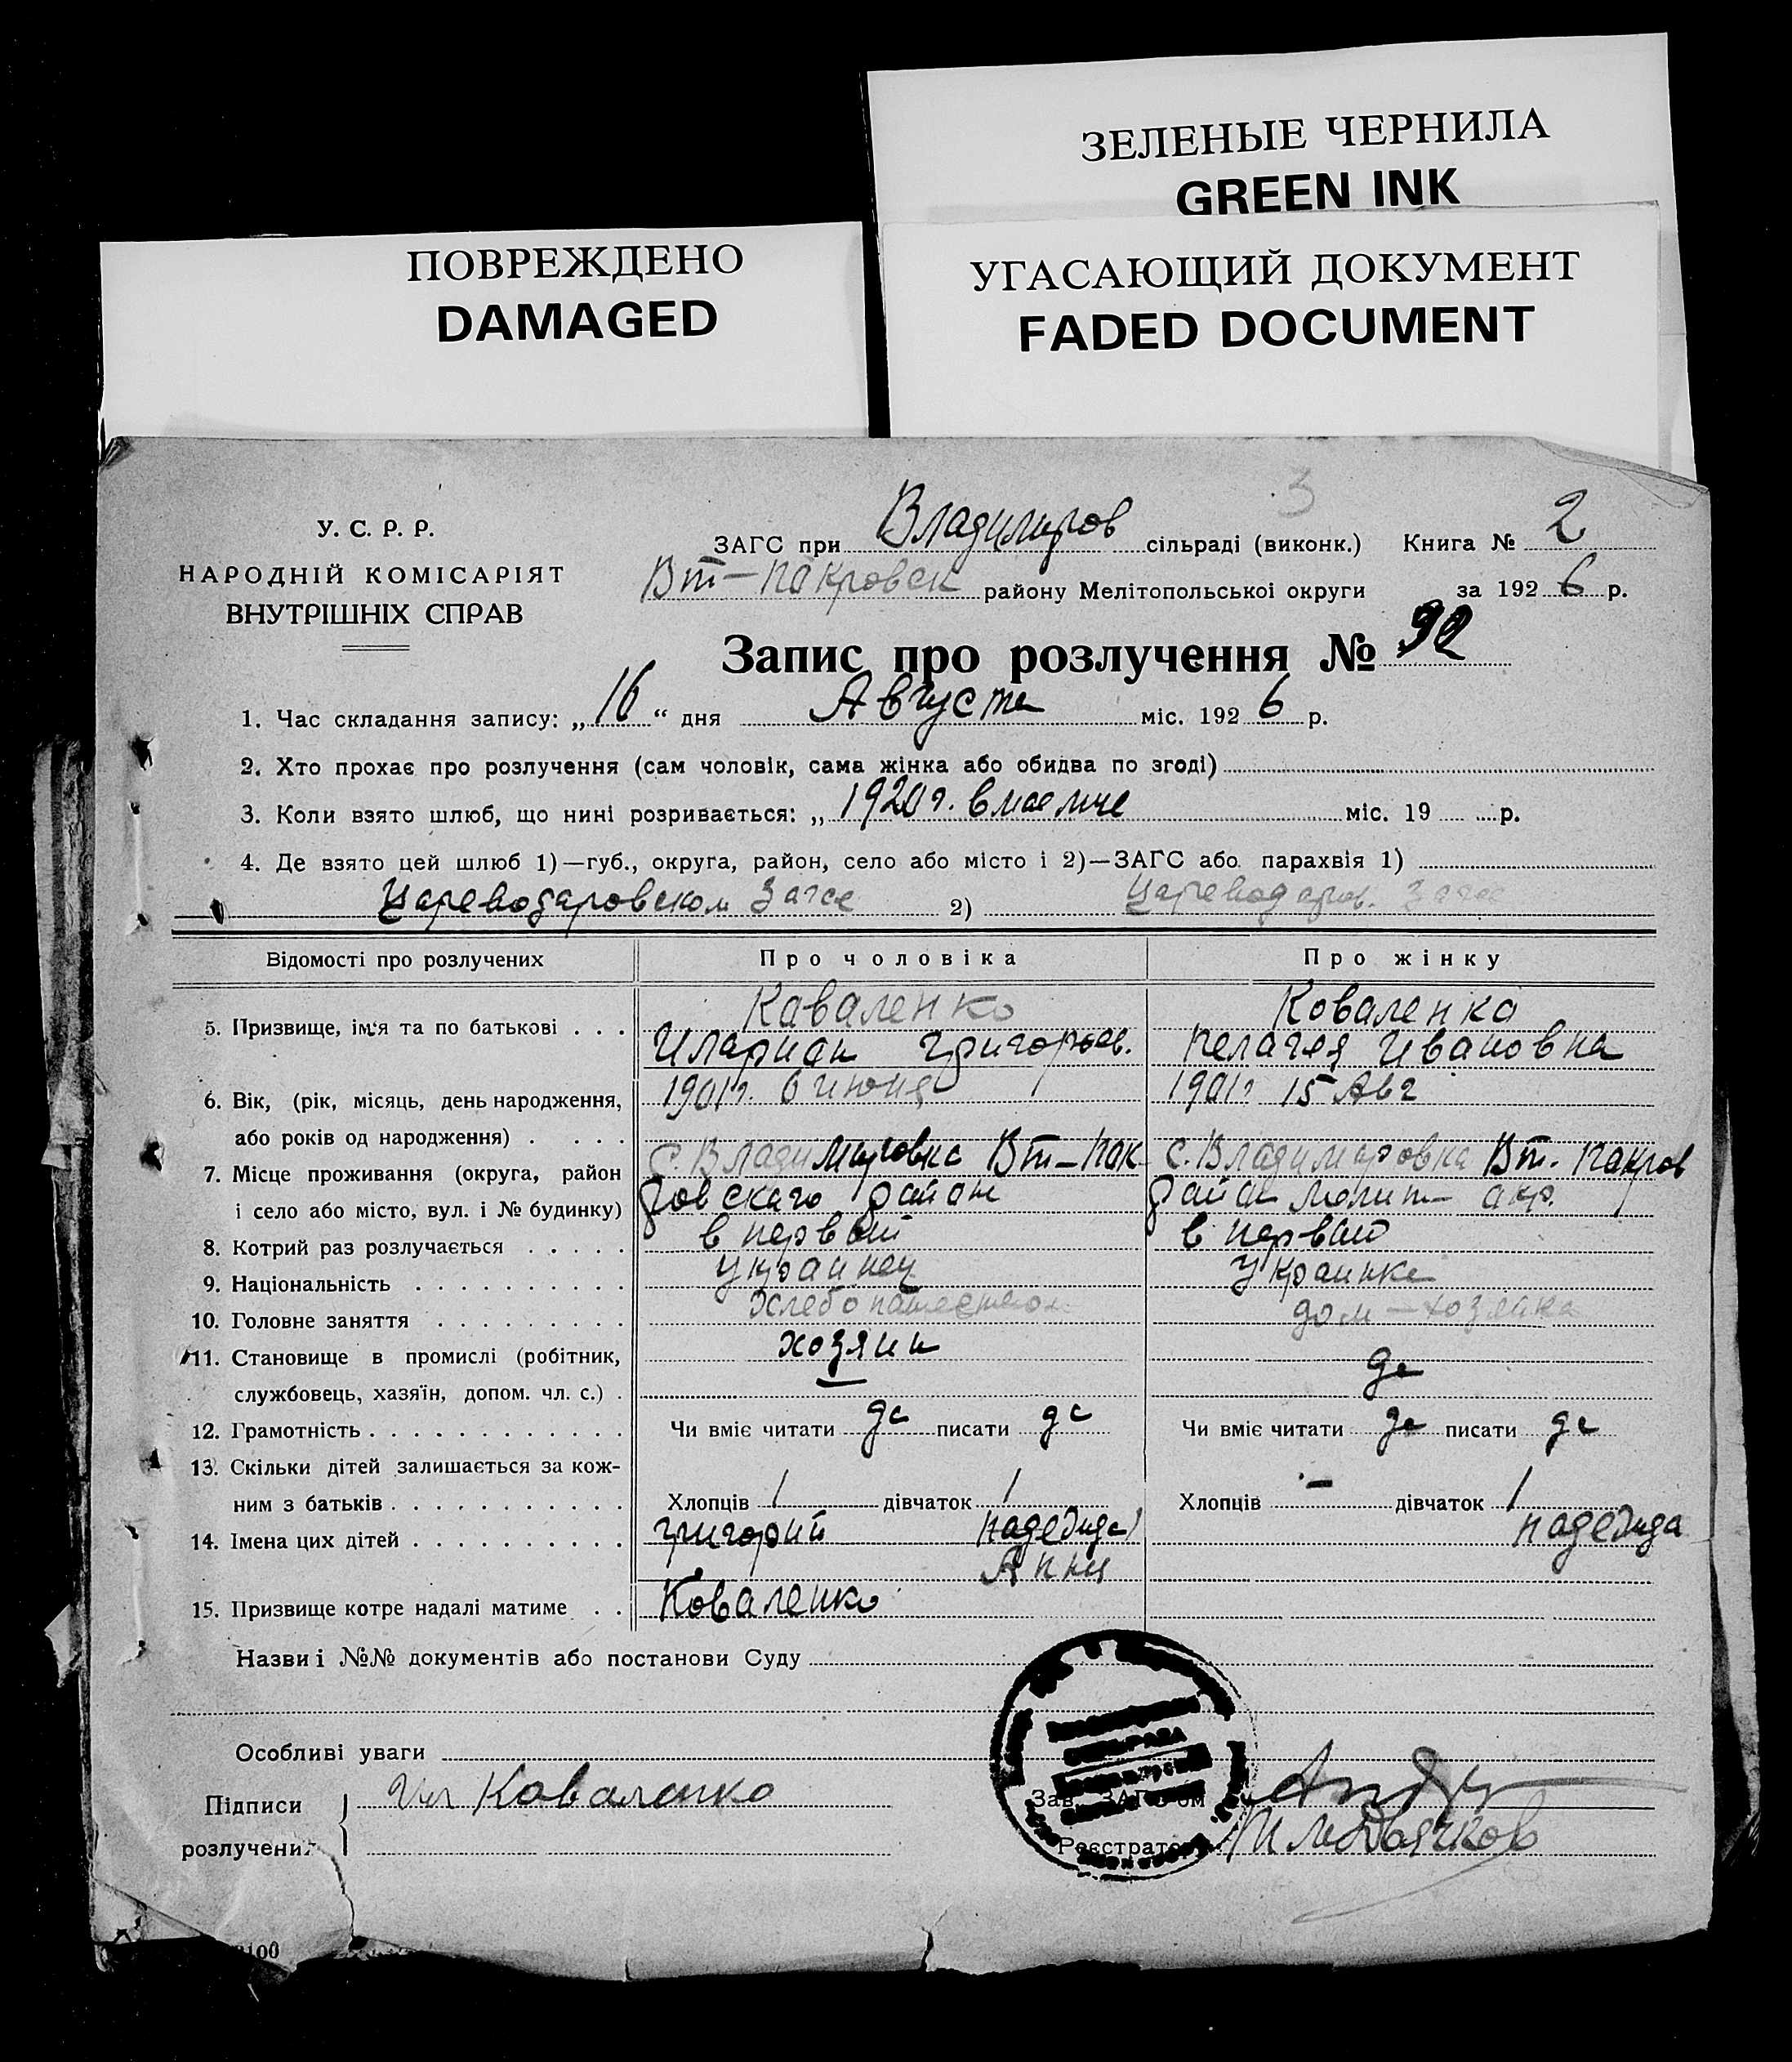 ЗЕЛЕНЫЕ ЧЕРНИЛА
GREEN INK
ПОВРЕЖДЕНО
DAMAGED
УГАСАЮЩИЙ ДОКУМЕНТ
FADED DOCUMENT
3
У. С. Р. Р.
НАРОДНІЙ КОМІСАРІЯТ
ВНУТРІШНІХ СПРАВ
ЗАГС при Владимиров сільраді (виконк.) Книга № 2
Вт-Покровск району Мелітопольської округи за 1926 р.
Запис про розлучення № 92
1. Час складання запису: „16“ дня Августа міс. 1926 р.
2. Хто прохає про розлучення (сам чоловік, сама жінка або обидва по згоді)
3. Коли взято шлюб, що нині розривається: „ 1920 г. в міс. 19 р.
4. Де взято цей шлюб 1)—губ., округа, район, село або місто і 2)—ЗАГС або парахвія 1)
Цареводаровском Загсе 2) Цареводаров. Загсе
Відомості про розлучених Про чоловіка Про жінку
5. Призвище, ім'я та по батькові . . . Каваленко Коваленко
Иларион Григорьев. Пелагея Ивановна
6. Вік, (рік, місяць, день народження, 1901 г. 6 июня 1901 г 15 Авг
або років од народження) . . . .
7. Місце проживання (округа, район с. Владимировка Вт-Пак с. Владимировка Вт. Покров
і село або місто, вул. і № будинку) ровскаго район район Мелит- окр.
8. Котрий раз розлучається . . . . . в первый в первый
9. Національність . . . . . . . . . . Украинец Украинка
10. Головне заняття . . . . . . . . . дом-хозяйка
11. Становище в промислі (робітник, хозяин
службовець, хазяїн, допом. чл. с.) . да
12. Грамотність . . . . . . . . . . . . Чи вміє читати да писати да Чи вміє читати да писати да
13. Скільки дітей залишається за кож-
ним з батьків . . . . . . . . . . . Хлопців 1 дівчаток 1 Хлопців - дівчаток 1
14. Імена цих дітей . . . . . . . . . . Григорий Надежда Надежда
15. Призвище котре надалі матиме . . Коваленко
Назви і №№ документів або постанови Суду
Особливі уваги
Підписи
розлучених
Ил Коваленко
Зав. ЗАГС'ом
Реєстратор
100